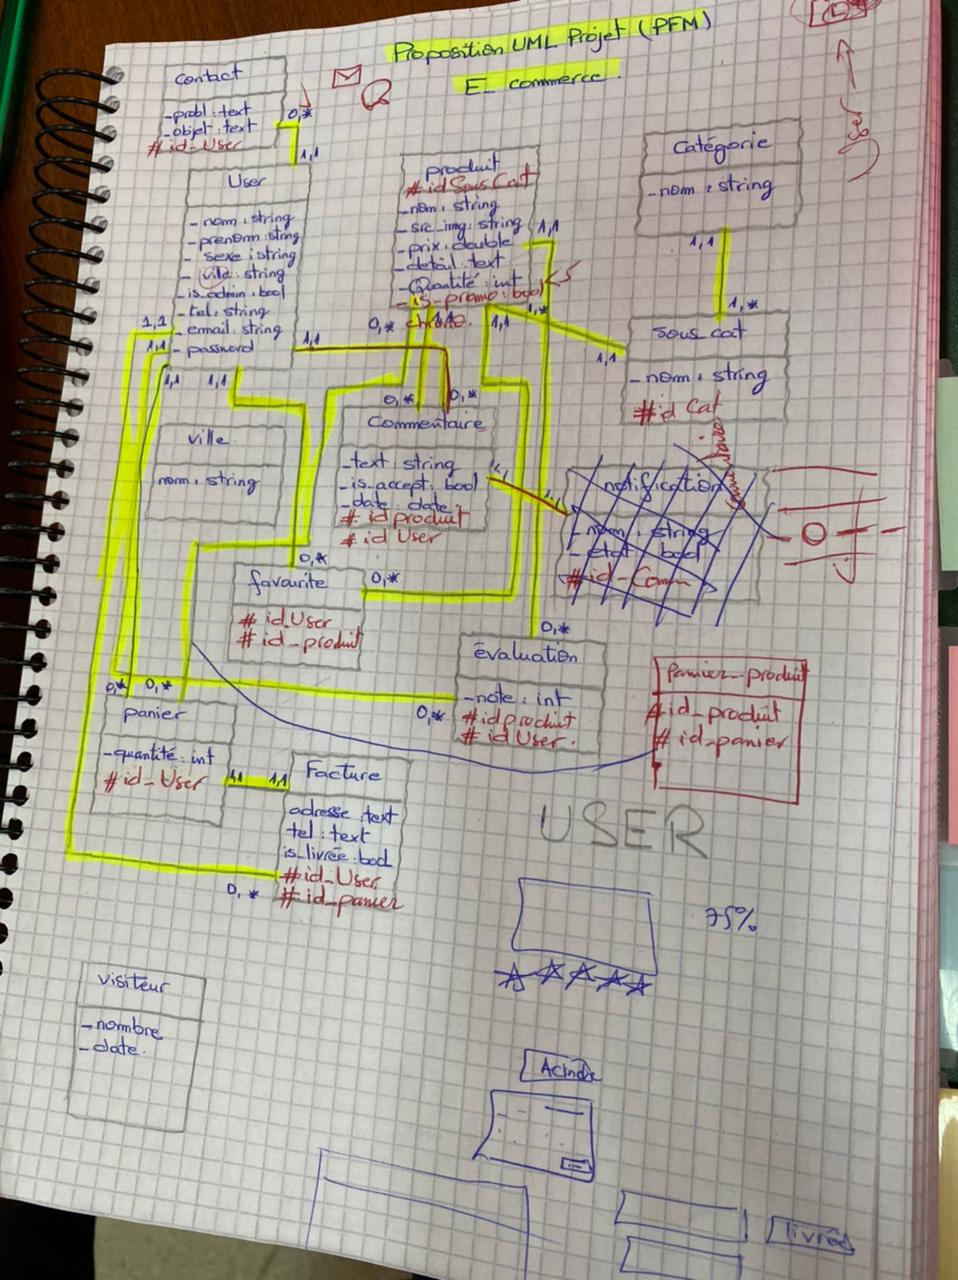 Proposition UML Projet (PFM)
E_ commerce.
Contact
-probl: text
-objet: text
#id_User
0,*
1,1
User
- nom: string
- prenom: string
- sexe: string
- ville: string
- is_admin: bool
- tel: string
- email: string
- password
1,1
1,1
1,1
1,1
1,1
produit
#idSousCat
-nom: string
-src_img: string
-prix: double
-detail: text
-Quantité: int
- is_promo: bool
1,1
5
0,*
1,1
1,1
1,*
1,1
Catégorie
-nom: string
1,1
1,*
sous cat
-nom: string
#id Cat
ville
nom: string
0,*
0,*
Commentaire
-text: string
-is_accept: bool
-date: date
#idproduit
#id User
notification
- nom: string
- etat: bool
#id-Comm
0,*
favourite
0,*
#id_User
#id_produit
0,*
évaluation
-note: int
#idproduit
#idUser.
0,*
0,*
0,*
panier
-quantité: int
#id_User
1,1
1,1
Facture
adresse: text
tel: text
is_livrée: bool
#id_User
#id_panier
0,*
Panier_produit
#id_produit
#id_panier
USER
75%
visiteur
-nombre
-date.
livrée